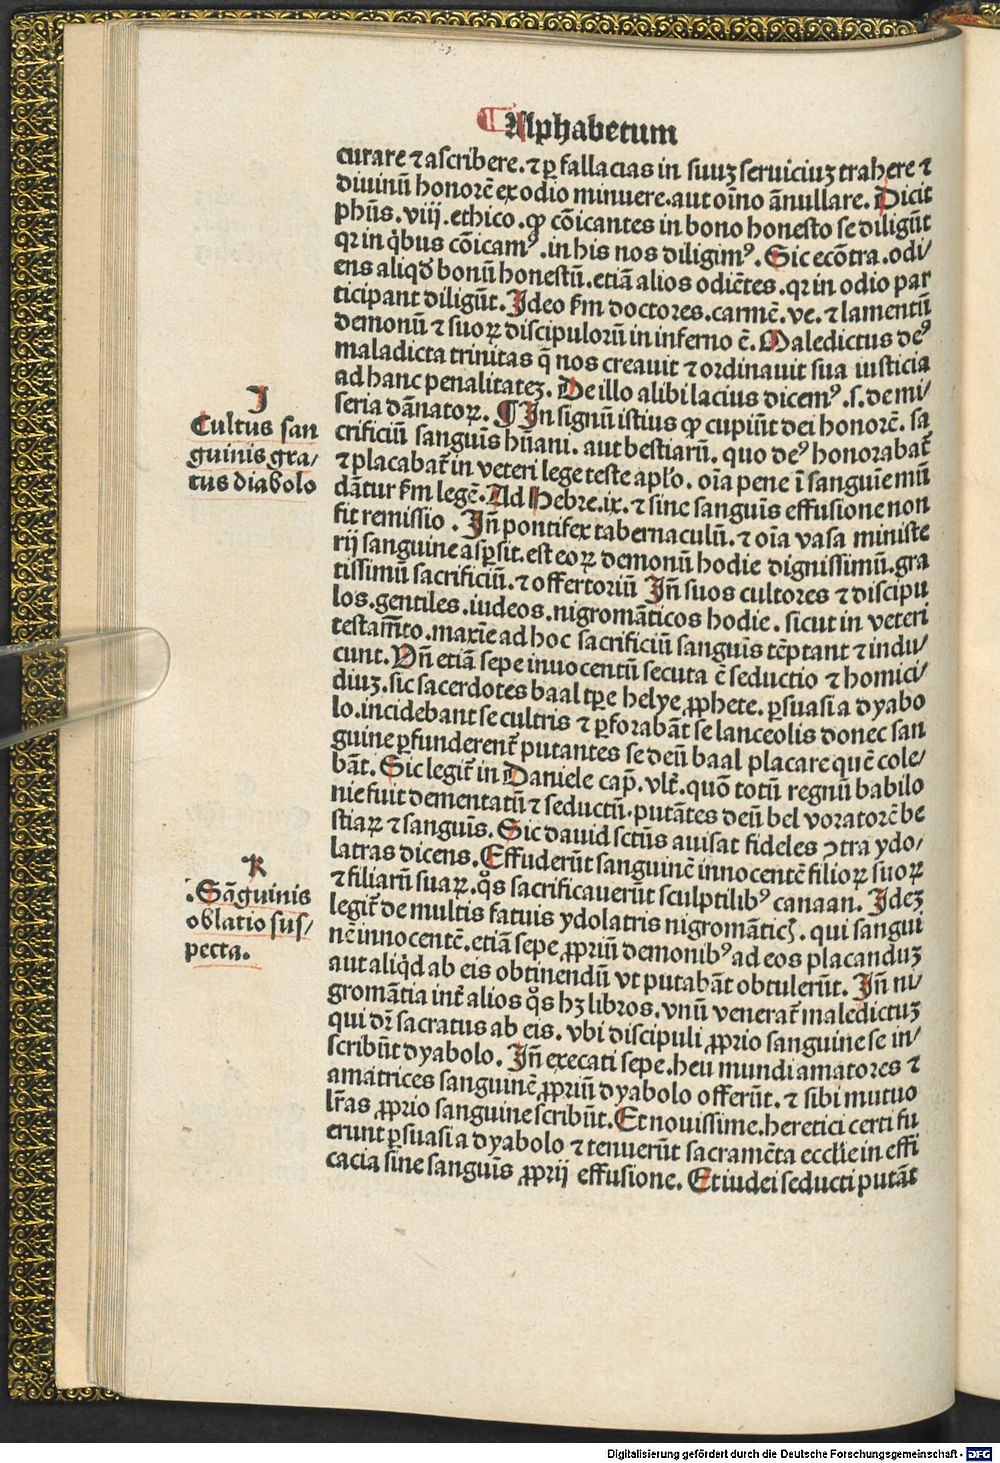 ¶ Alphabetum
curare ⁊ ascribere. ⁊ ꝑ fallacias in suuꝫ seruiciuꝫ trahere ⁊
diuinū honorē ex odio minuere. aut oīno ānullare. Dicit
phūs. viii. ethico. ꝙ cōicantes in bono honesto se diligūt
qꝛ in q̇bus cōicamꝰ. in his nos diligimꝰ. Sic ecōtra. odi/
ens aliqd̄ bonū honestū. etiā alios odiētes. qꝛ in odio par
ticipant diligūt. Ideo ẜm doctores. carmē. ve. ⁊ lamentū
demonū ⁊ suoꝝ discipuloꝝ in inferno ē. Maledictus deꝰ
maladicta trinitas q̄ nos creauit ⁊ ordinauit sua iusticia
ad hanc penalitateꝫ. De illo alibi lacius dicemꝰ. s. de mi/
seria dānatoꝝ. ¶ In signū istius ꝙ cupiūt dei honorē. sa
crificiū sanguīs hūani. aut bestiarū. quo deꝰ honorabat̄
⁊ placabat̄ in veteri lege teste apl̄o. oīa pene ī sanguīe mū
dātur ẜm legē. Ad Hebre. ix. ⁊ sine sanguīs effusione non
fit remissio. In̄ pontifex tabernaculū. ⁊ oīa vasa ministe
rij sanguine aspsit. est eoꝝ demonū hodie dignissimū. gra
tissimū sacrificiū. ⁊ offertoriū In̄ suos cultores ⁊ discipu
los. gentiles. iudeos. nigromāticos hodie. sicut in veteri
testam̄to. maxīe ad hoc sacrificiū sanguīs tēptant ⁊ indu/
cunt. Vn̄ etiā sepe in uocentū secuta ē seductio ⁊ homici/
diuꝫ. sic sacerdotes baal tꝑe helye ꝓphete. ꝑsuasi a dyabo
lo. incidebant se cultris ⁊ ꝑforabāt se lanceolis donec san
guine ꝑfunderent̄ putantes se deū baal placare quē cole/
bāt. Sic legit̄ in Daniele cap̄. vlt̄. quō totū regnū babilo
nie fuit dementatū ⁊ seductū. putātes deū bel voratorē be
stiaꝝ ⁊ sanguīs. Sic dauid sctūs auisat fideles ꝯtra ydo/
latras dicens. Effuderūt sanguinē innocentē filioꝝ suoꝝ
⁊ filiarū suaꝝ. qͦs sacrificauerūt sculptilibꝰ canaan. Ideꝫ
legit̄ de multis fatuis ydolatris nigromātic̄. qui sangui
nē innocentē. etiā sepe ꝓpriū demonibꝰ ad eos placanduꝫ
aut aliq̇d ab eis obtinendū vt putabāt obtulerūt. In̄ ni/
gromātia int̄ alios qͦs hꝫ libros. vnū venerat̄ maledictuꝫ
qui dr̄ sacratus ab eis. vbi discipuli ꝓprio sanguine se in/
scribūt dyabolo. In̄ execati sepe. heu mundi amatores ⁊
amatrices sanguinē ꝓpriū dyabolo offerūt. ⁊ sibi mutuo
lr̄as ꝓprio sanguine scribūt. Et nouissime. heretici certi fu
erunt ꝑsuasi a dyabolo ⁊ tenuerūt sacramēta eccl̄ie in effi
cacia sine sanguīs ꝓprij effusione. Et iudei seducti putāt
I
Cultus san
guinis gra/
tus diabolo
K
.Sāguinis
oblatio sus/
pecta.
Digitalisierung gefördert durch die Deutsche Forschungsgemeinschaft - DFG